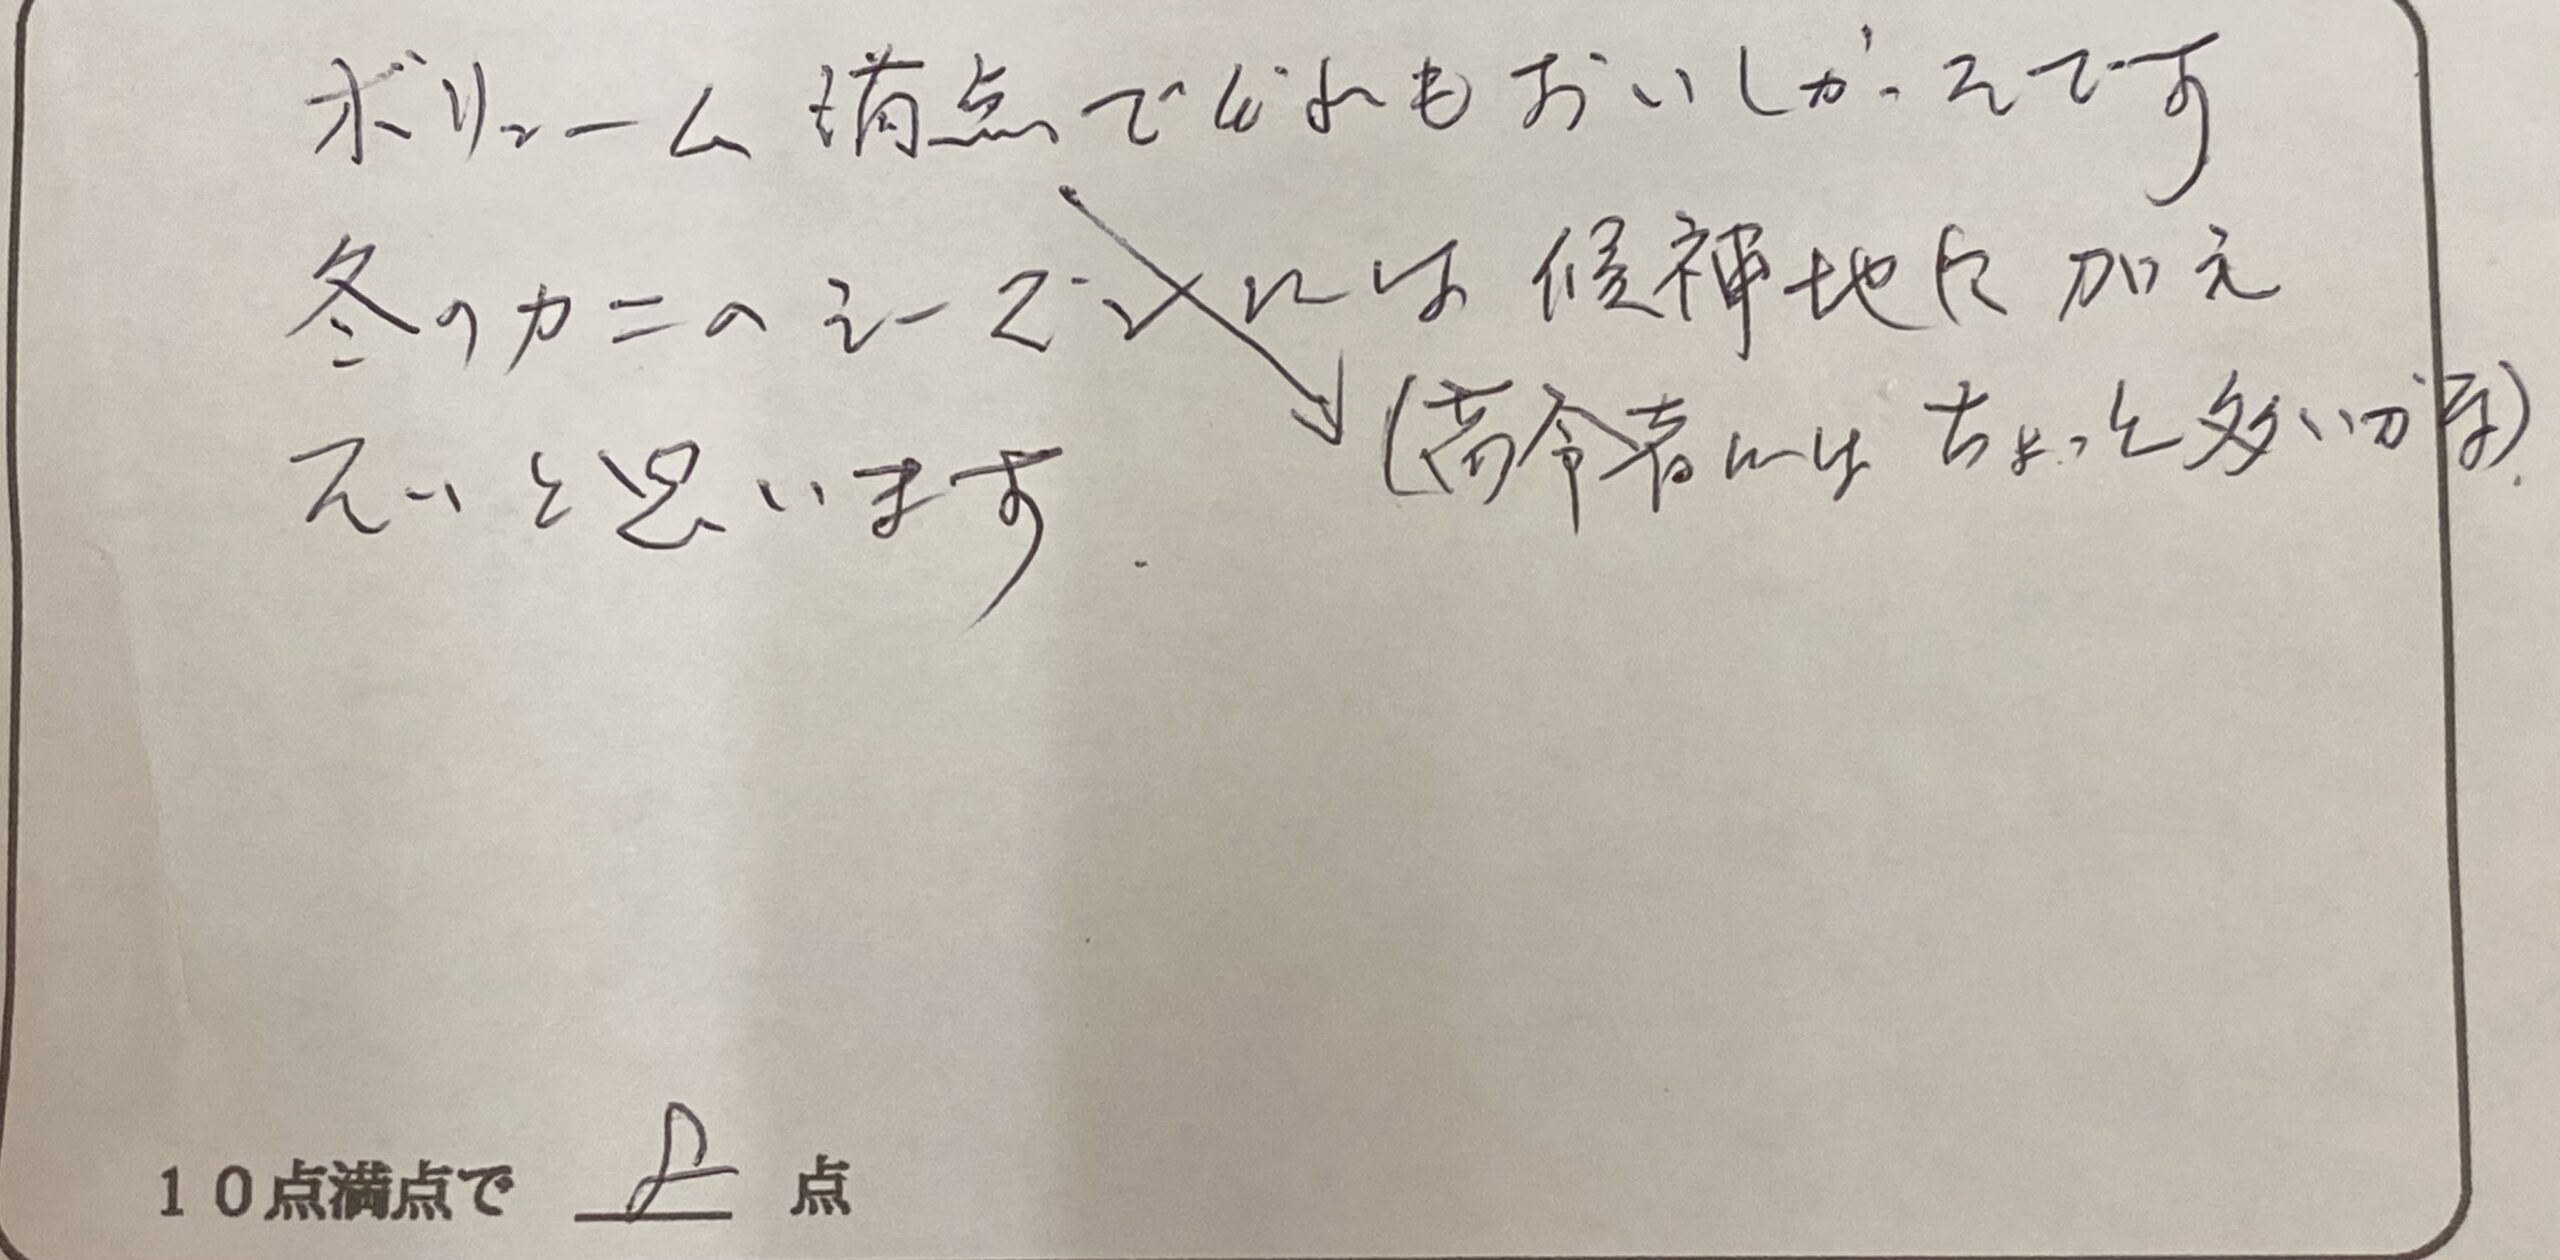 ボリューム満点でどれもおいしかったです
冬のカニのシーズンには候補地に加え
(高令者にはちょっと多いかな).
たいと思います.
10点満点で 8 点